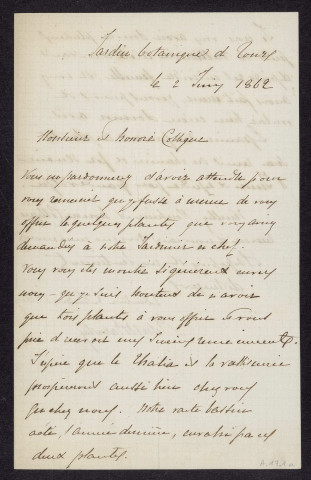 Jardin botanique de Tours
le 2 Juin 1862
Monsieur et honoré Collègue
Vous me pardonnerez d'avoir attendu pour
vous remercier que je fusse à même de vous
offrir les quelques plantes que vous avez
demandées à notre Jardinier en chef.
Vous vous êtes montré si généreux envers
nous que je suis honteux de n'avoir
que trois plantes à vous offrir. Je vous
prie d'recevoir mes sincères remerciements.
J'espère que le Thalia et la
prospèreront aussi bien chez vous
que chez nous. Notre vaste bassin
a été, l'année dernière, envahi par ces
deux plantes.